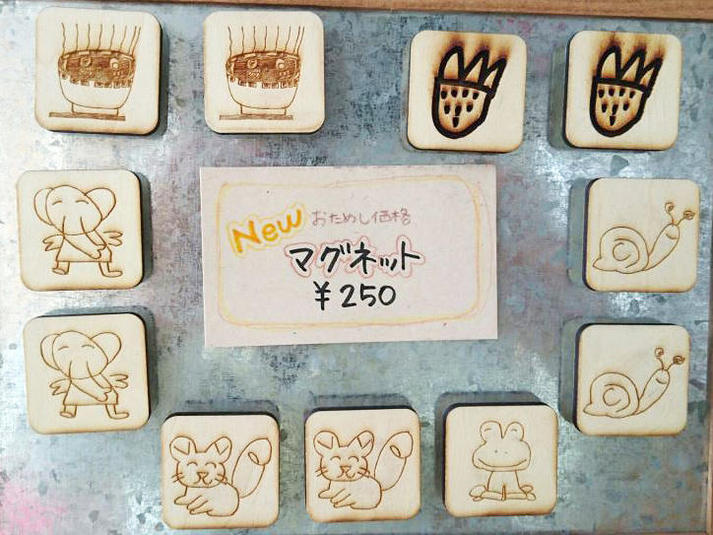 New おためし価格
マグネット
¥250